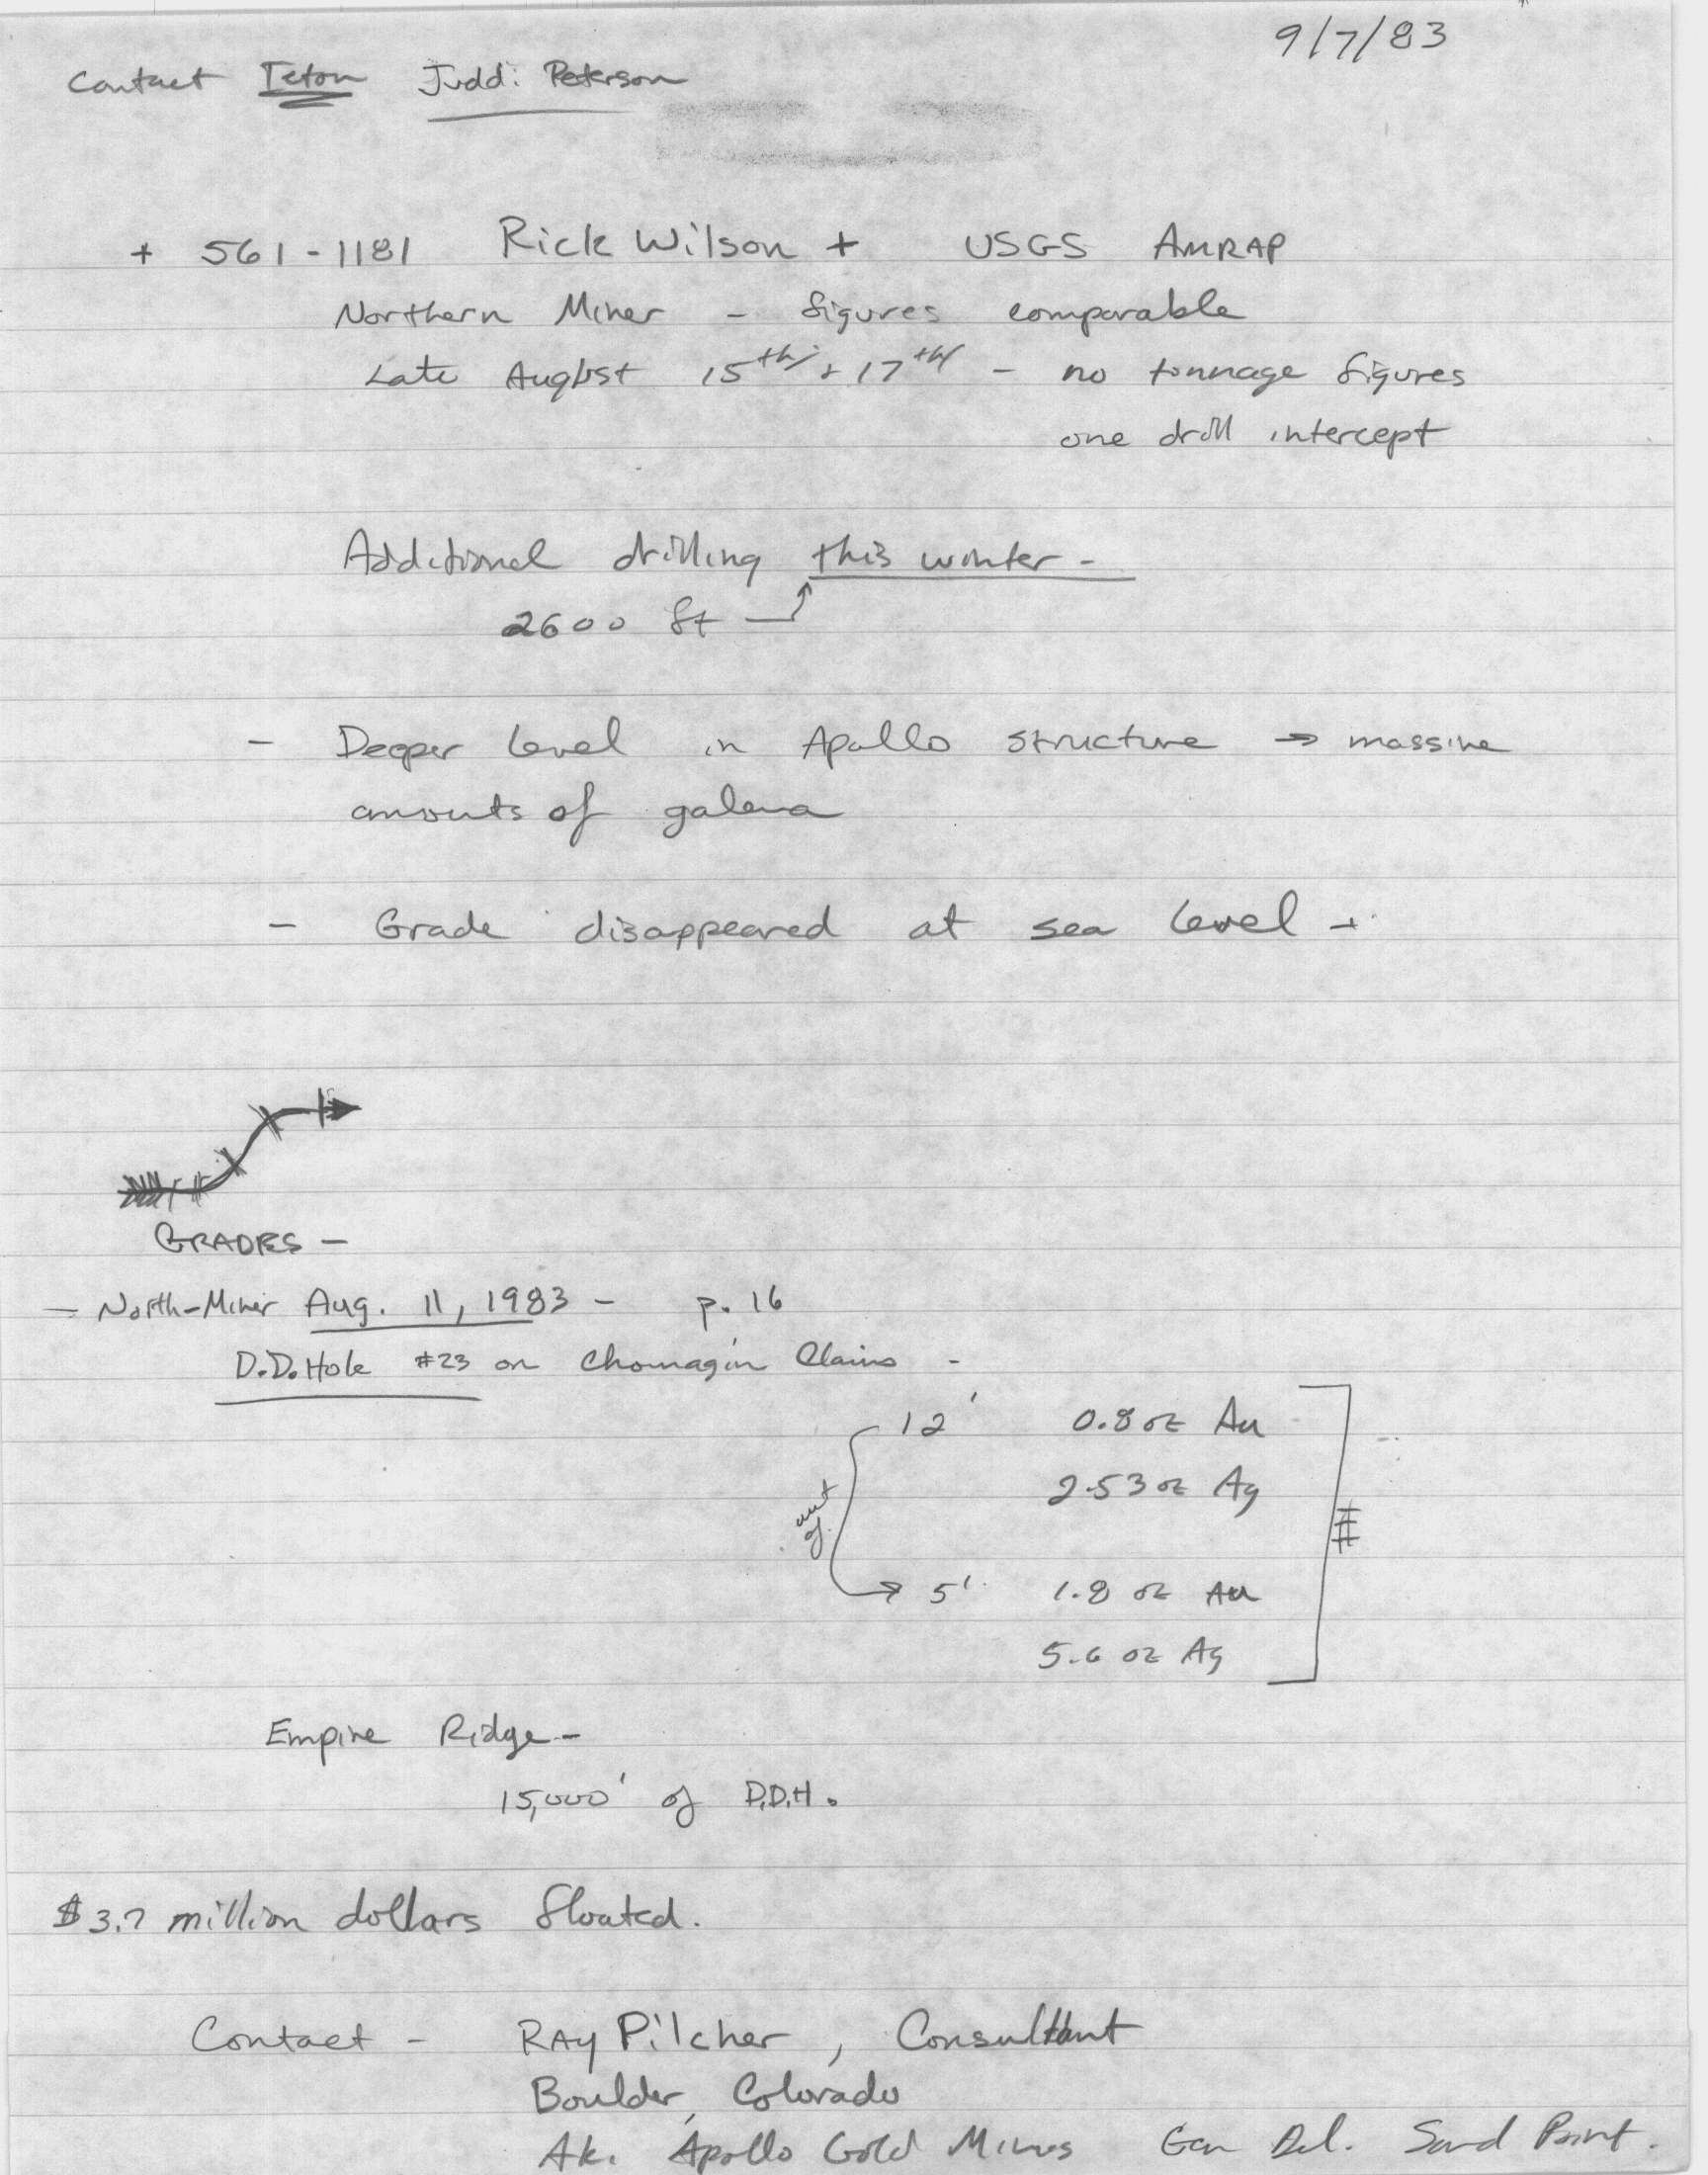 9/7/83
Contact Teton Judd: Peterson
+ 561-1181 Rick Wilson + USGS AMRAP
Northern Miner - figures comparable
Late August 15th + 17th - no tonnage figures
one drill intercept
Additional drilling this winter -
2600 ft
- Deeper level in Apollo structure → massive
amouts of galena
- Grade disappeared at sea level -
GRADES -
- North-Miner Aug. 11, 1983 - p. 16
D.D. Hole #23 on Claims -
12' 0.8 oz Au
2.53 oz Ag
out of
5' 1.8 oz Au
5.6 oz Ag
Empire Ridge -
15,000' of D.D.H.
$3.7 million dollars floated.
Contact - RAy Pilcher, Consultant
Boulder, Colorado
Ak. Apollo Gold Mines Gen Del. Sand Point.